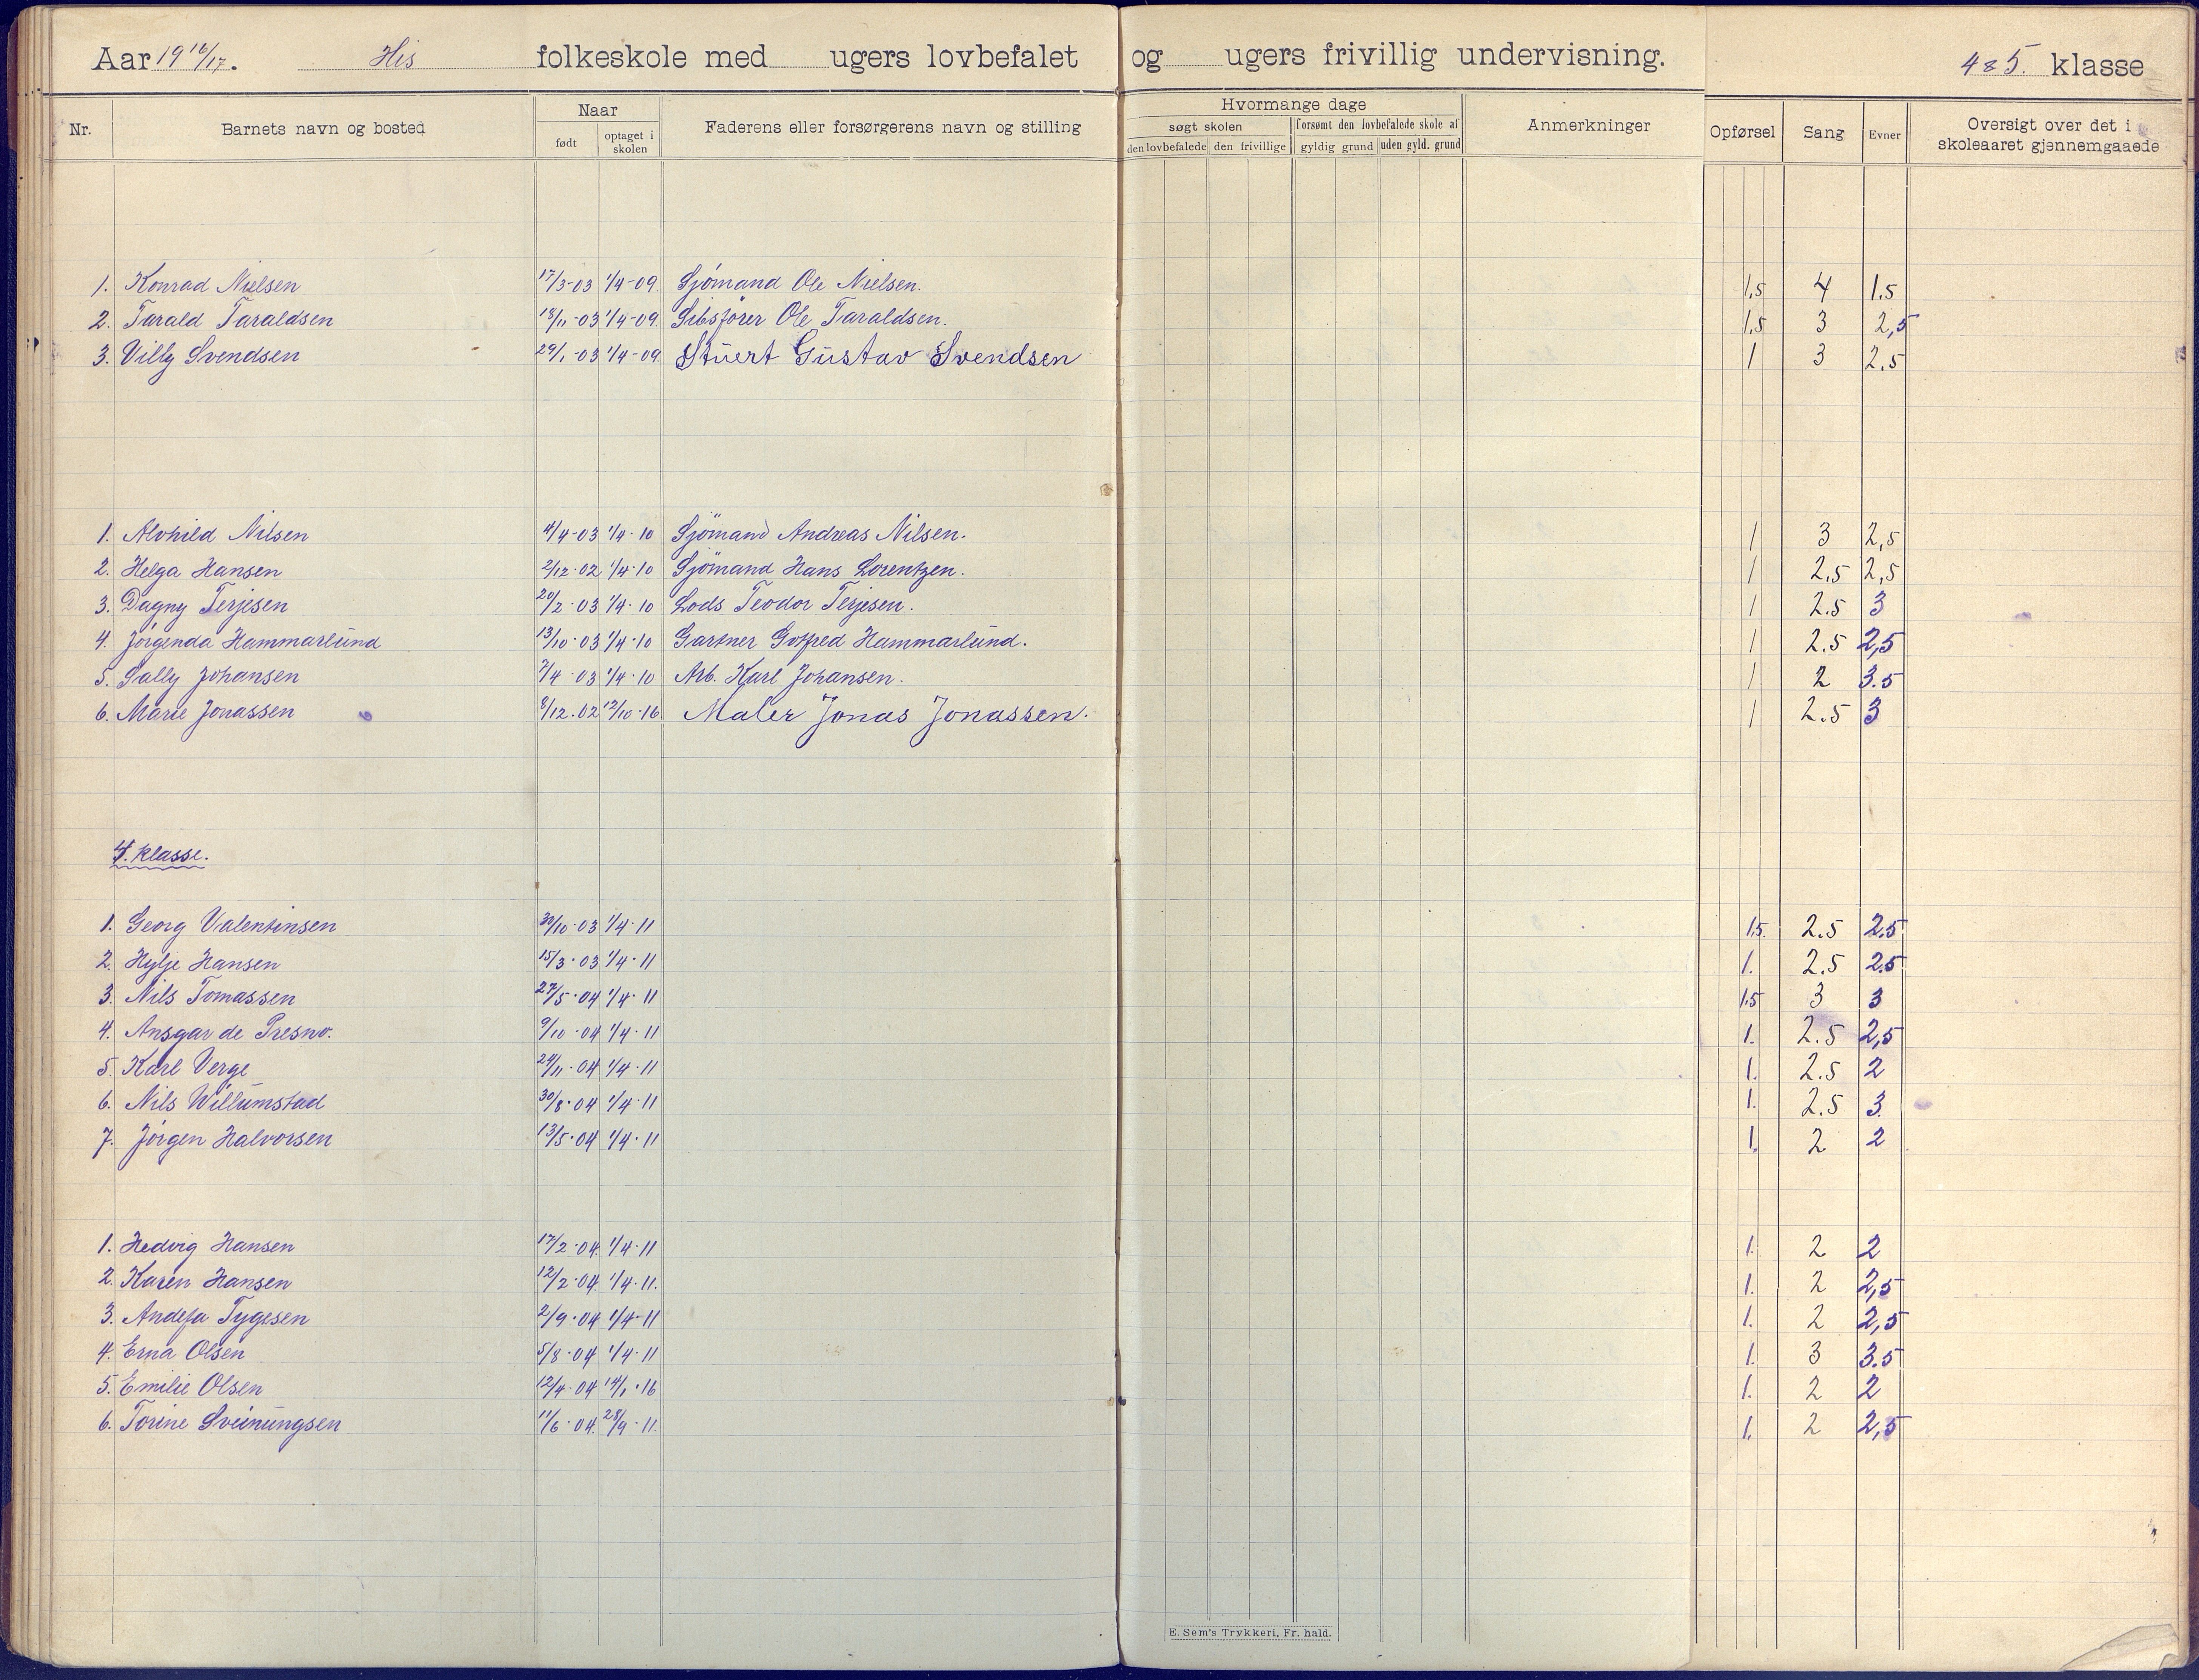 Aar 19 16/17. His folkeskole med ugers lovbefalet og ugers frivillig undervisning. 4 & 5. klasse
Nr. Barnets navn og bosted Naar født optaget i skolen Faderens eller forsørgerens navn og stilling Hvormange dage søgt skolen den lovbefalede den frivillige forsømt den lovbefalede skole af gyldig grund uden gyld. grund Anmerkninger Opførsel Sang Evner Oversigt over det i skoleaaret gjennemgaaede
1. Konrad Nielsen 17/3-03 1/4-09. Sjömand Ole Nielsen. 1,5 4 1.5
2. Tarald Taraldsen 18/11-03 1/4-09. Skibsförer Ole Taraldsen. 1,5 3 2,5
3. Villy Svendsen 29/1-03 1/4-09 Stuert Gustav Svendsen 1 3 2.5
1. Alvhild Nilsen 4/4-03 1/4-10 Sjömand Andreas Nilsen. 1 3 2,5
2. Helga Hansen 2/12-02 1/4-10 Sjömand Hans Lorentzen. 1 2,5 2,5
3. Dagny Terjesen 20/2-03 1/4-10 Lods Teodor Terjesen. 1 2.5 3
4. Jörginda Hammarlund 13/10-03 1/4-10 Gartner Gotfred Hammarlund. 1 2.5 2,5
5. Sally Johansen 7/4-03 1/4-10 Arb. Karl Johansen. 1 2 3.5
6. Marie Jonassen 8/12.02 12/10-16 Maler Jonas Jonassen. 1 2.5 3
4. klasse.
1. Georg Valentinsen 30/10-03 1/4-11 1.5 2.5 2.5
2. Hylje Hansen 15/3-03 1/4-11 1. 2.5 2.5
3. Nils Tomassen 27/5-04 1/4-11 1.5 3 3
4. Ansgar de Presno. 9/10-04 1/4-11 1. 2.5 2,5
5. Karl Verge 24/11-04 1/4-11 1. 2.5 2
6. Nils Willumstad 30/8-04 1/4-11 1. 2.5 3.
7. Jörgen Halvorsen 13/5-04 1/4-11 1. 2 2
1. Hedvig Hansen 17/2-04. 1/4-11 1. 2 2
2. Karen Hansen 12/2-04. 1/4-11. 1. 2 2,5
3. Tygesen 2/9-04 1/4-11 1. 2 2,5
4. Erna Olsen 5/8-04 1/4-11 1. 3 3.5
5. Emilie Olsen 12/4-04 14/1-16 1. 2 2
6. Torine Sveinungsen 11/6-04. 28/9-11. 1. 2 2,5
E. Sem's Trykkeri, Fr. hald.